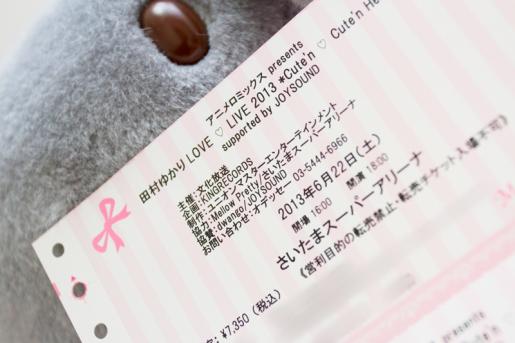 アニメロミックス presents
田村ゆかり LOVE ♡ LIVE 2013 *Cute'n ♡ Cute'n He
supported by JOYSOUND
主催:文化放送
企画:KINGRECORDS
制作:ユニオンマスターエンターテインメント
協力:Mellow Pretty さいたまスーパーアリーナ
協賛:dwango/JOYSOUND
お問い合わせ:オデッセー 03-5444-6966
2013年6月22日(土)
開場 16:00 開演 18:00
さいたまスーパーアリーナ
《営利目的の転売禁止・転売チケット入場不可》
¥7,350 (税込)